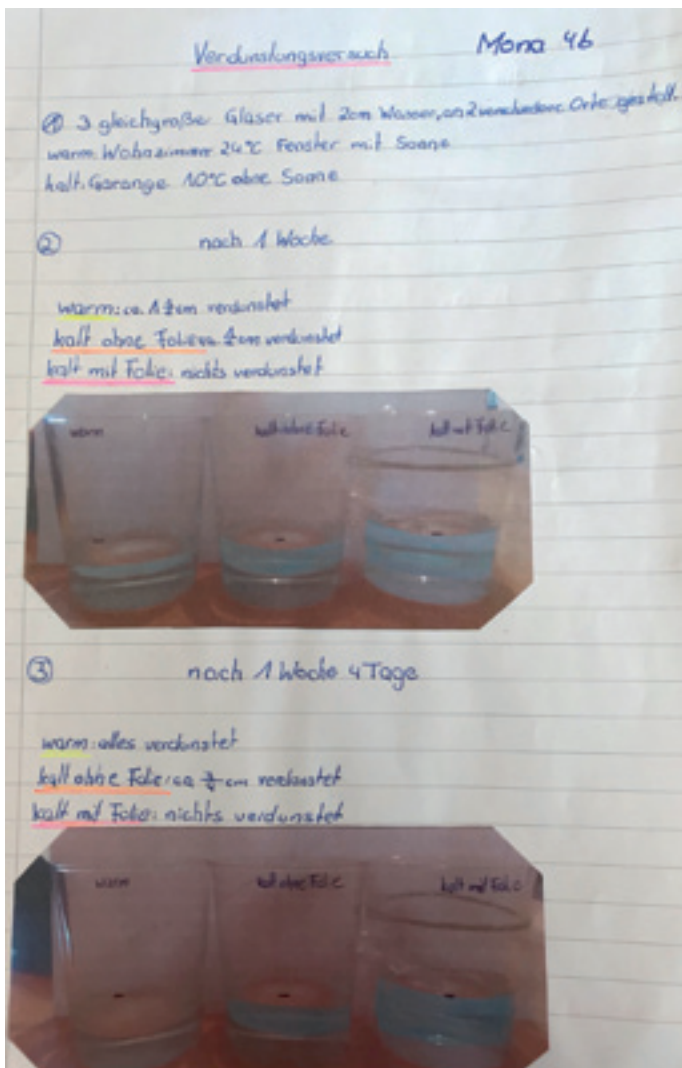 Verdunstungsversuch Mona 4b
① 3 gleichgroße Gläser mit 2cm Wasser, an 2 verschiedene Orte gestellt.
warm: Wohnzimmer 24°C Fenster mit Sonne
kalt: Garange 10°C ohne Sonne
② nach 1 Woche
warm: ca. 1 cm verdunstet
kalt ohne Folie: ca. cm verdunstet
kalt mit Folie: nichts verdunstet
warm kalt ohne Folie kalt mit Folie
③ nach 1 Woche 4 Tage
warm: alles verdunstet
kalt ohne Folie: ca cm verdunstet
kalt mit Folie: nichts verdunstet
warm kalt ohne Folie kalt mit Folie